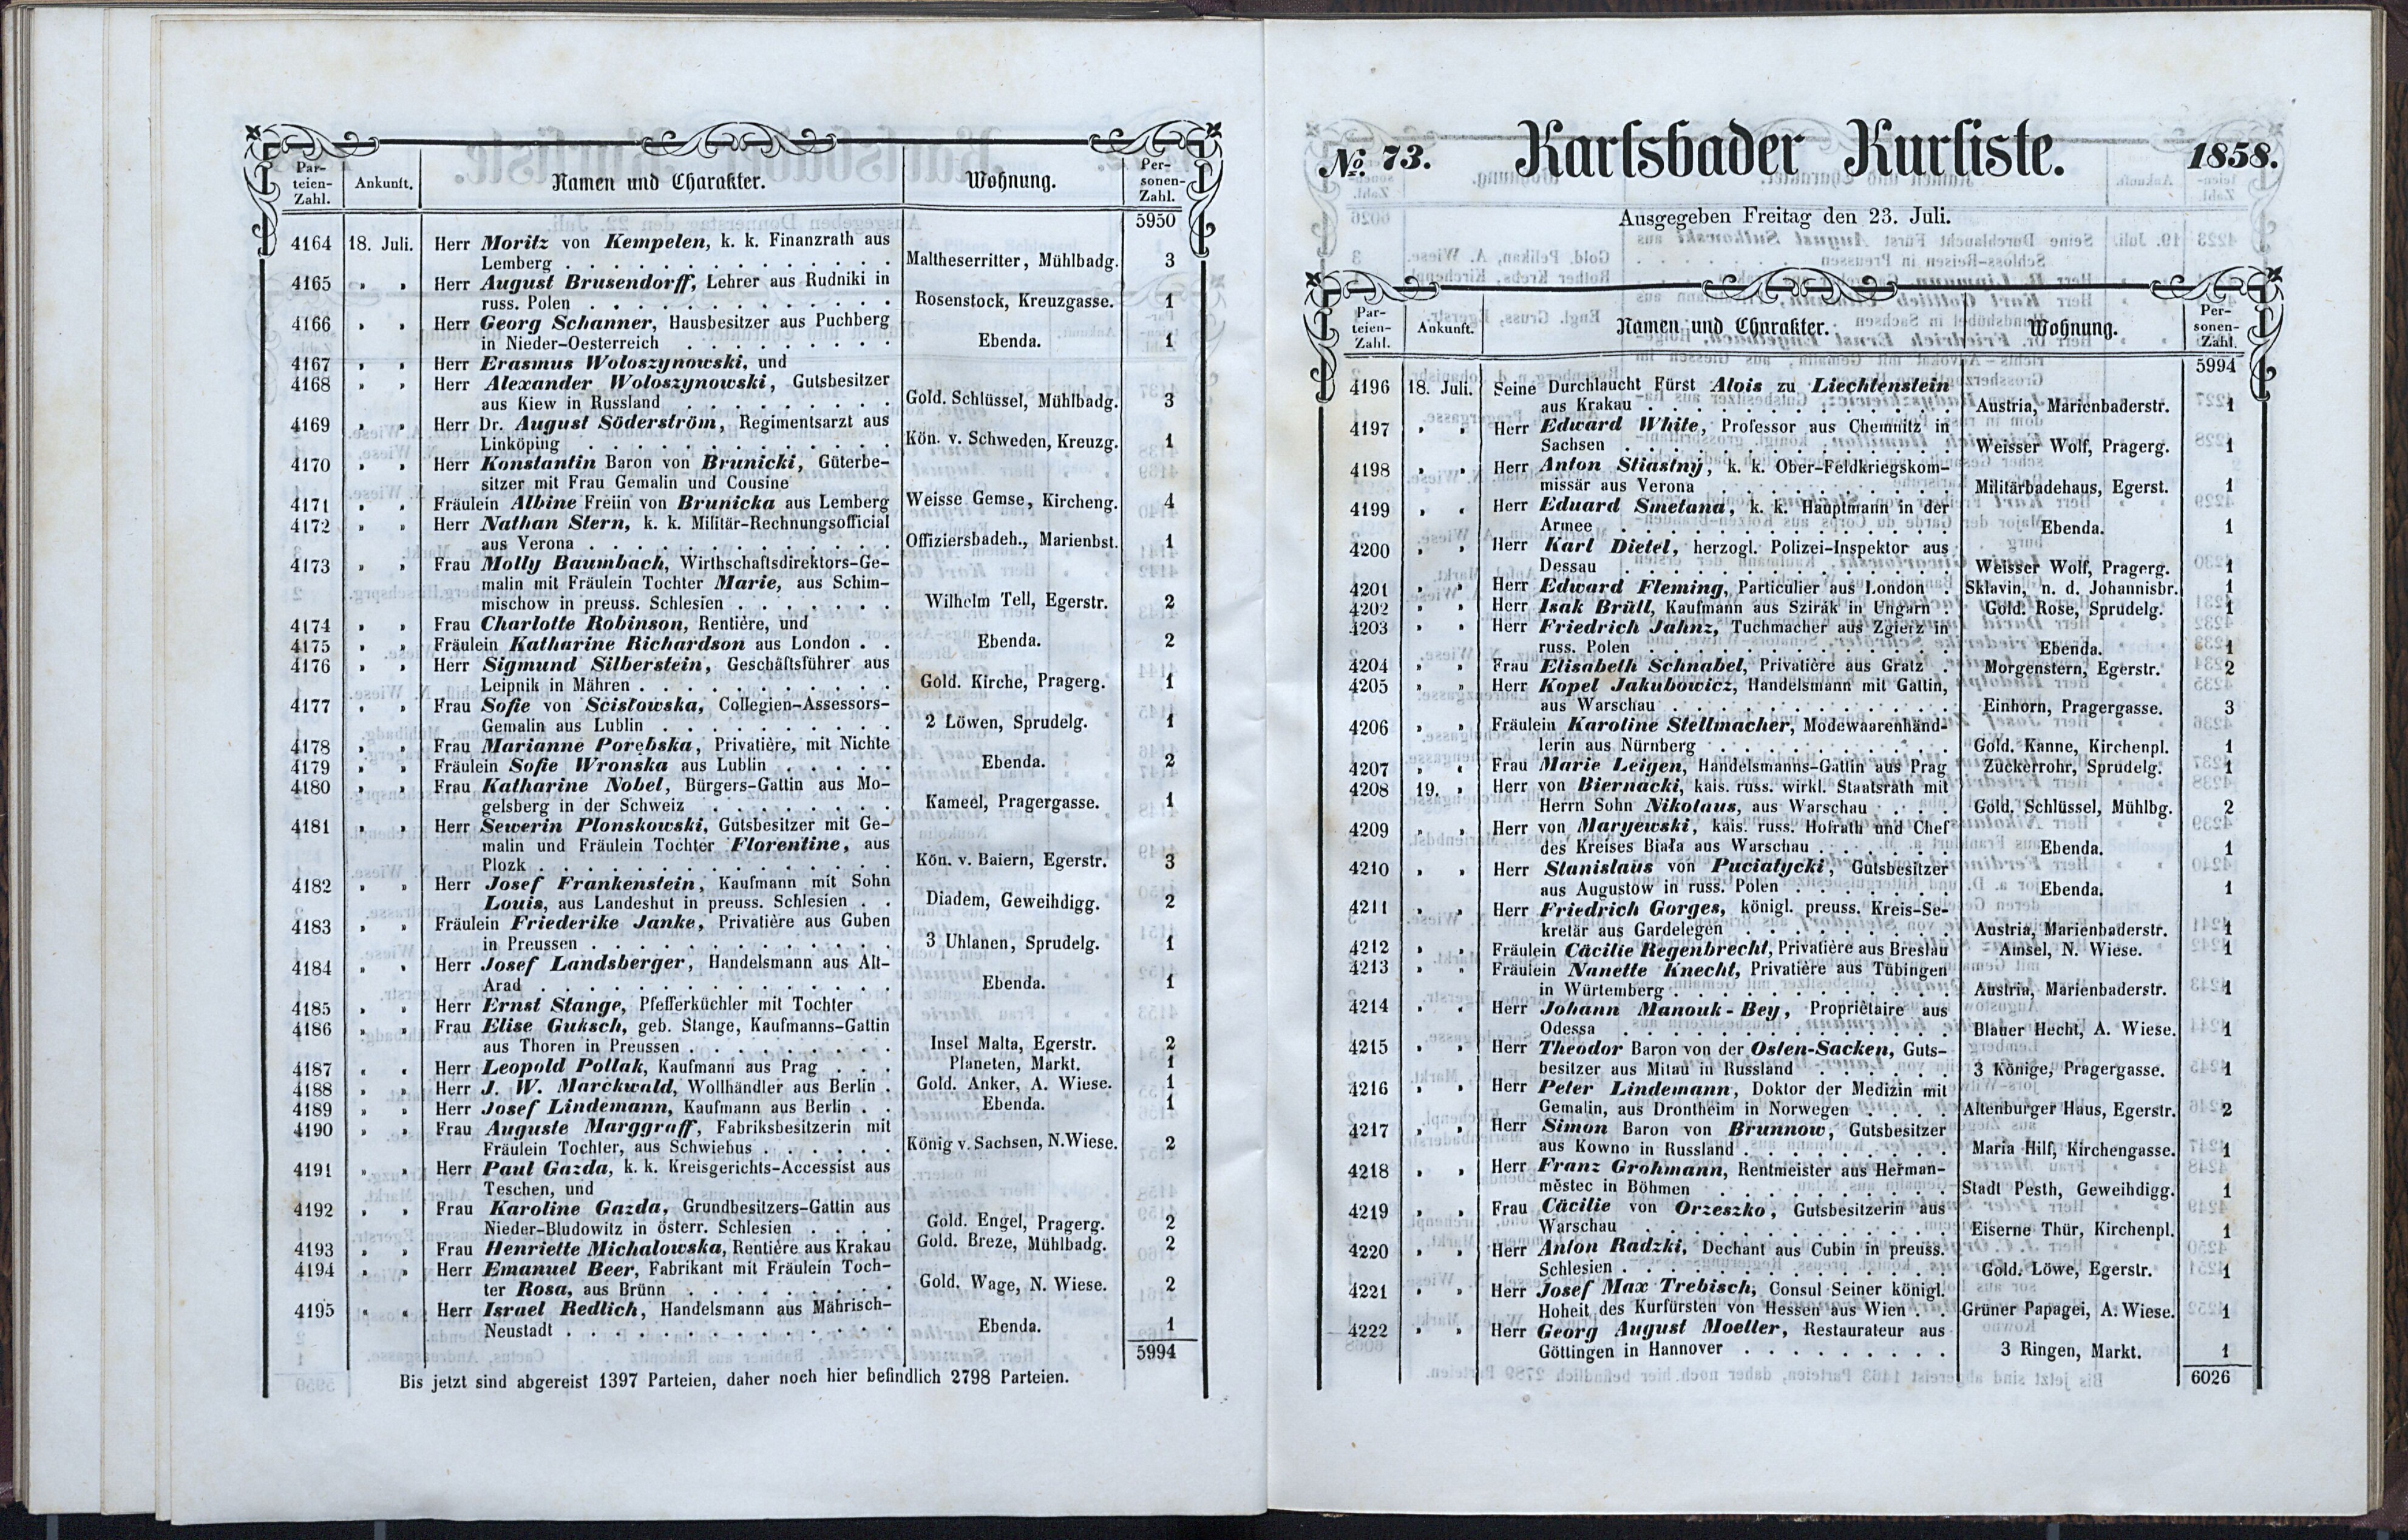 Par-
teien-
Zahl. Ankunft. Namen und Charakter. Wohnung. Per-
sonen-
Zahl.
5950
4164 18. Juli. Herr Moritz von Kempelen, k. k. Finanzrath aus
Lemberg . . . Maltheserritter, Mühlbadg. 3
4165 » » Herr August Brusendorff, Lehrer aus Rudniki in
russ. Polen . . . Rosenstock, Kreuzgasse. 1
4166 » » Herr Georg Schanner, Hausbesitzer aus Puchberg
in Nieder-Oesterreich . . . Ebenda. 1
4167 » » Herr Erasmus Woloszynowski, und
4168 » » Herr Alexander Woloszynowski, Gutsbesitzer
aus Kiew in Russland . . . Gold. Schlüssel, Mühlbadg. 3
4169 » » Herr Dr. August Söderström, Regimentsarzt aus
Linköping . . . Kön. v. Schweden, Kreuzg. 1
4170 » » Herr Konstantin Baron von Brunicki, Güterbe-
sitzer mit Frau Gemalin und Cousine
4171 » » Fräulein Albine Freiin von Brunicka aus Lemberg Weisse Gemse, Kircheng. 4
4172 » » Herr Nathan Stern, k. k. Militär-Rechnungsofficial
aus Verona . . . Offiziersbadeh., Marienbst. 1
4173 » » Frau Molly Baumbach, Wirthschaftsdirektors-Ge-
malin mit Fräulein Tochter Marie, aus Schim-
mischow in preuss. Schlesien . . . Wilhelm Tell, Egerstr. 2
4174 » » Frau Charlotte Robinson, Rentière, und
4175 » » Fräulein Katharine Richardson aus London . . Ebenda. 2
4176 » » Herr Sigmund Silberstein, Geschäftsführer aus
Leipnik in Mähren . . . Gold. Kirche, Pragerg. 1
4177 » » Frau Sofie von Scistowska, Collegien-Assessors-
Gemalin aus Lublin . . . 2 Löwen, Sprudelg. 1
4178 » » Frau Marianne Porębska, Privatière, mit Nichte
4179 » » Fräulein Sofie Wronska aus Lublin . . . Ebenda. 2
4180 » » Frau Katharine Nobel, Bürgers-Gattin aus Mo-
gelsberg in der Schweiz . . . Kameel, Pragergasse. 1
4181 » » Herr Sewerin Plonskowski, Gutsbesitzer mit Ge-
malin und Fräulein Tochter Florentine, aus
Plozk . . . Kön. v. Baiern, Egerstr. 3
4182 » » Herr Josef Frankenstein, Kaufmann mit Sohn
Louis, aus Landeshut in preuss. Schlesien . . Diadem, Geweihdigg. 2
4183 » » Fräulein Friederike Janke, Privatière aus Guben
in Preussen . . . 3 Uhlanen, Sprudelg. 1
4184 » » Herr Josef Landsberger, Handelsmann aus Alt-
Arad . . . Ebenda. 1
4185 » » Herr Ernst Stange, Pfefferküchler mit Tochter
4186 » » Frau Elise Guksch, geb. Stange, Kaufmanns-Gattin
aus Thoren in Preussen . . . Insel Malta, Egerstr. 2
4187 » » Herr Leopold Pollak, Kaufmann aus Prag . . . Planeten, Markt. 1
4188 » » Herr J. W. Marckwald, Wollhändler aus Berlin . Gold. Anker, A. Wiese. 1
4189 » » Herr Josef Lindemann, Kaufmann aus Berlin . . Ebenda. 1
4190 » » Frau Auguste Marggraff, Fabriksbesitzerin mit
Fräulein Tochter, aus Schwiebus . . . König v. Sachsen, N. Wiese. 2
4191 » » Herr Paul Gazda, k. k. Kreisgerichts-Accessist aus
Teschen, und
4192 » » Frau Karoline Gazda, Grundbesitzers-Gattin aus
Nieder-Bludowitz in österr. Schlesien . . . Gold. Engel, Pragerg. 2
4193 » » Frau Henriette Michalowska, Rentière aus Krakau Gold. Breze, Mühlbadg. 2
4194 » » Herr Emanuel Beer, Fabrikant mit Fräulein Toch-
ter Rosa, aus Brünn . . . Gold. Wage, N. Wiese. 2
4195 » » Herr Israel Redlich, Handelsmann aus Mährisch-
Neustadt . . . Ebenda. 1
5994
Bis jetzt sind abgereist 1397 Parteien, daher noch hier befindlich 2798 Parteien.
No. 73. Karlsbader Kurliste. 1858.
Ausgegeben Freitag den 23. Juli.
Par-
teien-
Zahl. Ankunft. Namen und Charakter. Wohnung. Per-
sonen-
Zahl.
5994
4196 18. Juli. Seine Durchlaucht Fürst Alois zu Liechtenstein
aus Krakau . . . Austria, Marienbaderstr. 1
4197 » » Herr Edward White, Professor aus Chemnitz in
Sachsen . . . Weisser Wolf, Pragerg. 1
4198 » » Herr Anton Stiastny, k. k. Ober-Feldkriegskom-
missär aus Verona . . . Militärbadehaus, Egerst. 1
4199 » » Herr Eduard Smetana, k. k. Hauptmann in der
Armee . . . Ebenda. 1
4200 » » Herr Karl Dietel, herzogl. Polizei-Inspektor aus
Dessau . . . Weisser Wolf, Pragerg. 1
4201 » » Herr Edward Fleming, Particulier aus London . Sklavin, n. d. Johannisbr. 1
4202 » » Herr Isak Brüll, Kaufmann aus Szirák in Ungarn . Gold. Rose, Sprudelg. 1
4203 » » Herr Friedrich Jahnz, Tuchmacher aus Zgierz in
russ. Polen . . . Ebenda. 1
4204 » » Frau Elisabeth Schnabel, Privatière aus Gratz . Morgenstern, Egerstr. 2
4205 » » Herr Kopel Jakubowicz, Handelsmann mit Gattin,
aus Warschau . . . Einhorn, Pragergasse. 3
4206 » » Fräulein Karoline Stellmacher, Modewaarenhänd-
lerin aus Nürnberg . . . Gold. Kanne, Kirchenpl. 1
4207 » » Frau Marie Leigen, Handelsmanns-Gattin aus Prag Zuckerrohr, Sprudelg. 1
4208 19. » Herr von Biernacki, kais. russ. wirkl. Staatsrath mit
Herrn Sohn Nikolaus, aus Warschau . . . Gold. Schlüssel, Mühlbg. 2
4209 » » Herr von Maryewski, kais. russ. Hofrath und Chef
des Kreises Biała aus Warschau . . . Ebenda. 1
4210 » » Herr Stanislaus von Puciatycki, Gutsbesitzer
aus Augustow in russ. Polen . . . Ebenda. 1
4211 » » Herr Friedrich Gorges, königl. preuss. Kreis-Se-
kretär aus Gardelegen . . . Austria, Marienbaderstr. 1
4212 » » Fräulein Cäcilie Regenbrecht, Privatière aus Breslau Amsel, N. Wiese. 1
4213 » » Fräulein Nanette Knecht, Privatière aus Tübingen
in Würtemberg . . . Austria, Marienbaderstr. 1
4214 » » Herr Johann Manouk-Bey, Propriêtaire aus
Odessa . . . Blauer Hecht, A. Wiese. 1
4215 » » Herr Theodor Baron von der Osten-Sacken, Guts-
besitzer aus Mitau in Russland . . . 3 Könige, Pragergasse. 1
4216 » » Herr Peter Lindemann, Doktor der Medizin mit
Gemalin, aus Drontheim in Norwegen . . . Altenburger Haus, Egerstr. 2
4217 » » Herr Simon Baron von Brunnow, Gutsbesitzer
aus Kowno in Russland . . . Maria Hilf, Kirchengasse. 1
4218 » » Herr Franz Grohmann, Rentmeister aus Herman-
městec in Böhmen . . . Stadt Pesth, Geweihdigg. 1
4219 » » Frau Cäcilie von Orzeszko, Gutsbesitzerin aus
Warschau . . . Eiserne Thür, Kirchenpl. 1
4220 » » Herr Anton Radzki, Dechant aus Cubin in preuss.
Schlesien . . . Gold. Löwe, Egerstr. 1
4221 » » Herr Josef Max Trebisch, Consul Seiner königl.
Hoheit des Kurfürsten von Hessen aus Wien . . Grüner Papagei, A. Wiese. 1
4222 » » Herr Georg August Moeller, Restaurateur aus
Göttingen in Hannover . . . 3 Ringen, Markt. 1
6026